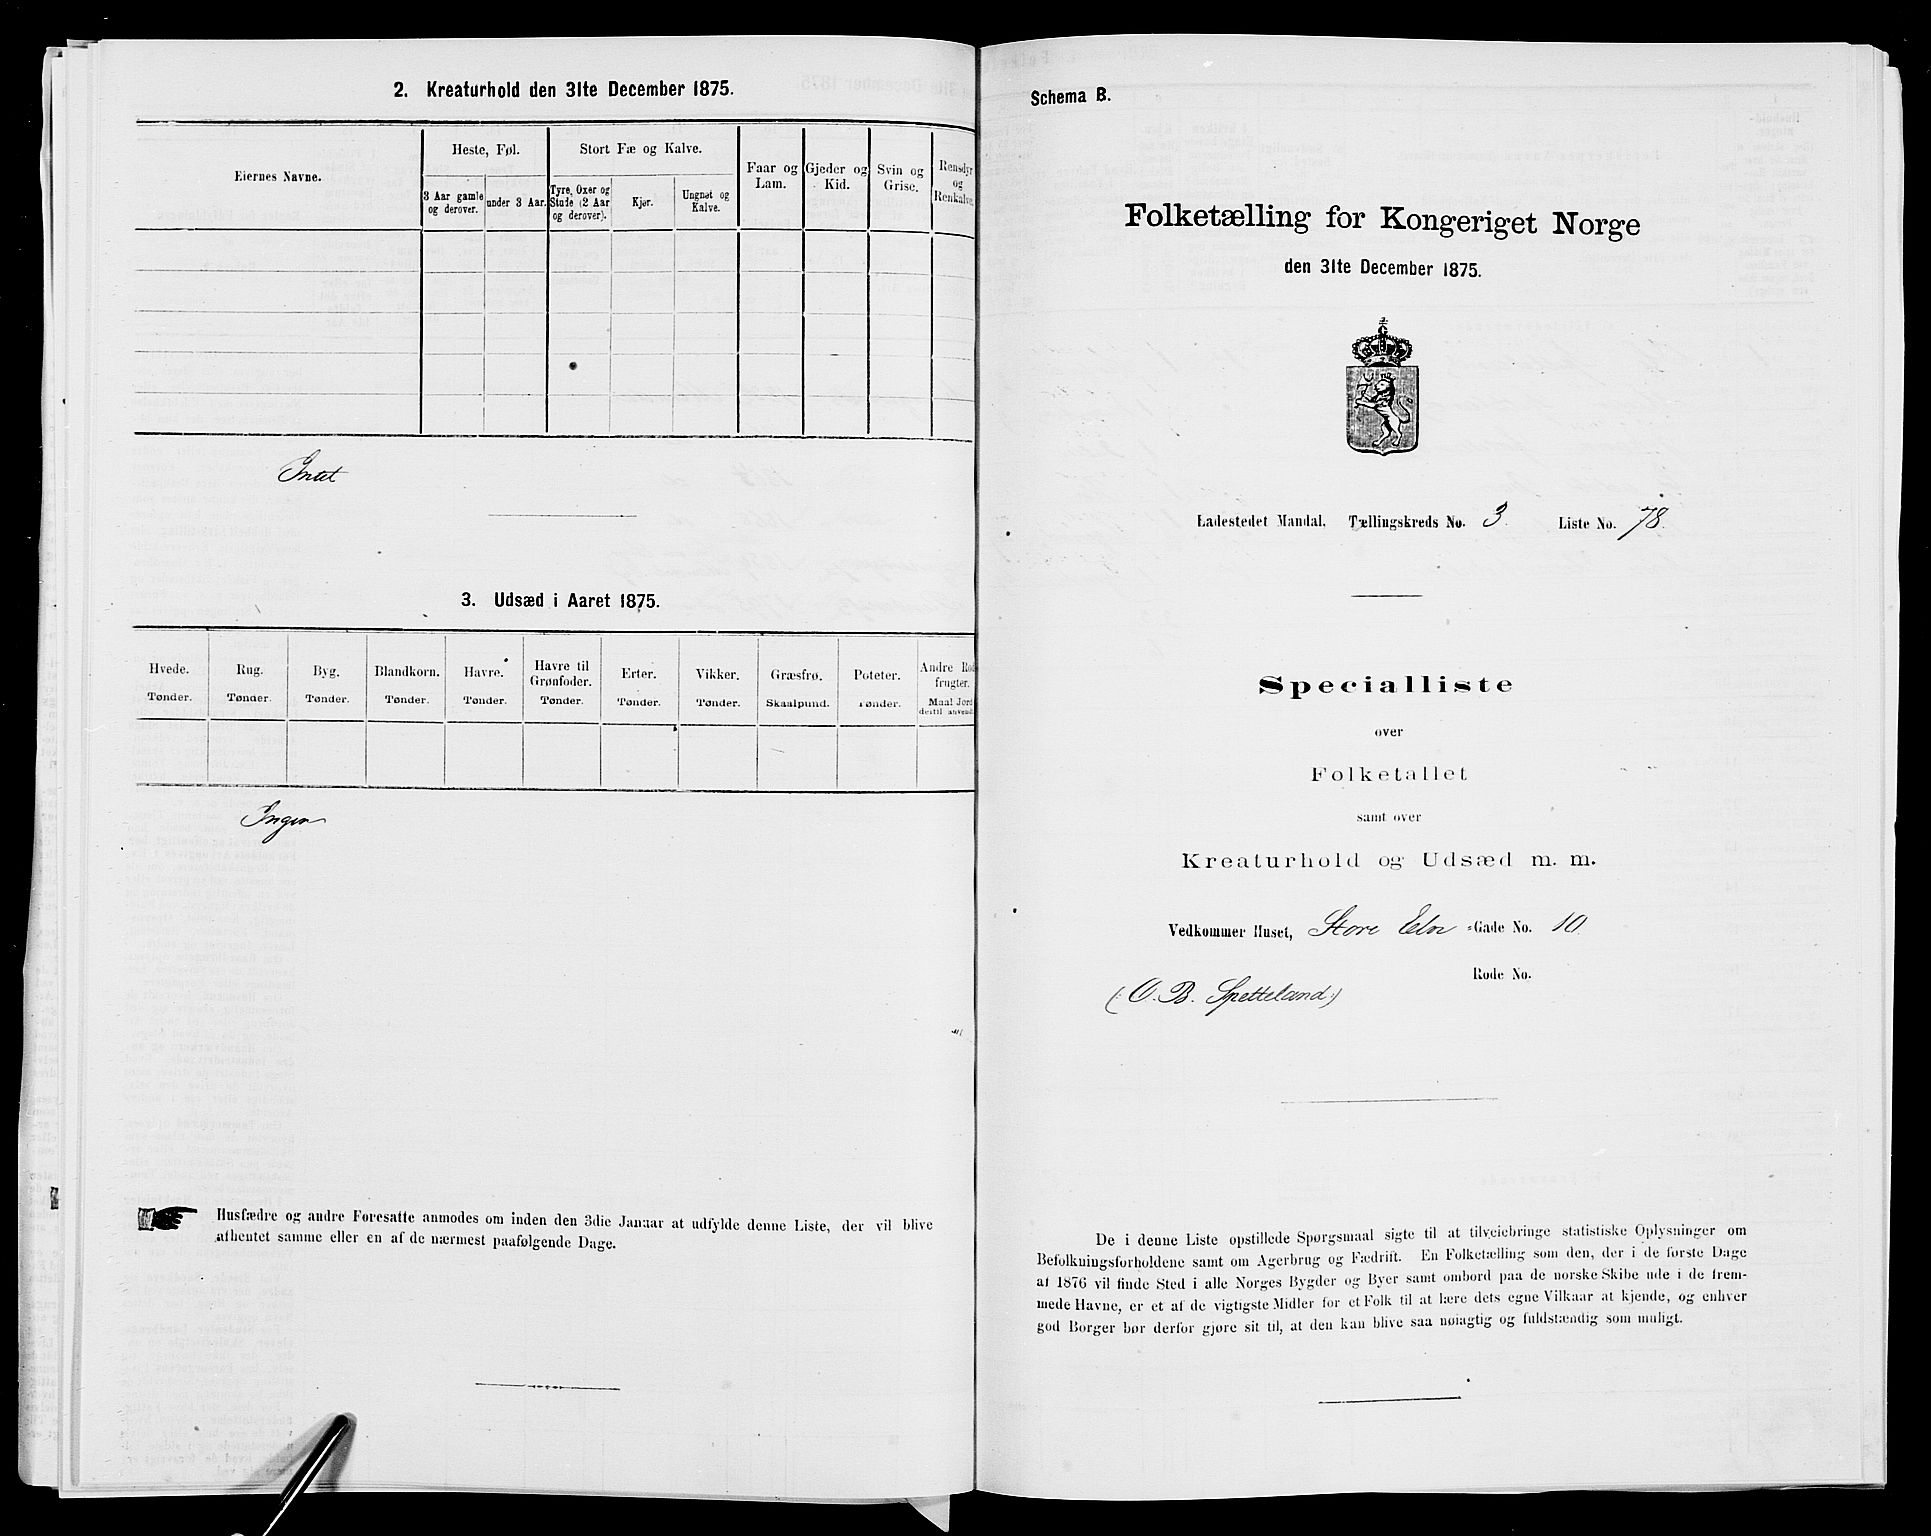 2. Kreaturhold den 31te December 1875.
Eiernes Navne.
Heste, Føl.
Stort Fæ og Kalve.
Faar og Lam.
Gjeder og Kid.
Svin og Grise.
Rensdyr og Renkalve.
3 Aar gamle og derover.
under 3 Aar.
Tyre, Oxer og Stude (2 Aar og derover).
Kjør.
Ungnøt og Kalve.
Intet
3. Udsæd i Aaret 1875.
Hvede. Tønder.
Rug. Tønder.
Byg. Tønder.
Blandkorn. Tønder.
Havre. Tønder.
Havre til Grønfoder. Tønder.
Erter. Tønder.
Vikker. Tønder.
Græsfrø. Skaalpund.
Poteter. Tønder.
Andre Rodfrugter. Maal Jord dertil anvend.
Ingen
Husfædre og andre Foresatte anmodes om inden den 3die Januar at udfylde denne Liste, der vil blive
afhentet samme eller en af de nærmest paafølgende Dage.
Schema B.
Folketælling for Kongeriget Norge
den 31te December 1875.
Ladestedet Mandal. Tællingskreds No. 3. Liste No. 78.
Specialliste
over
Folketallet
samt over
Kreaturhold og Udsæd m. m.
Vedkommer Huset, Store Elve-Gade No. 10.
Rode No.
(: O. B. Spetteland :)
De i denne Liste opstillede Spørgsmaal sigte til at tilveiebringe statistiske Oplysninger om
Befolkningsforholdene samt om Agerbrug og Fædrift. En Folketælling som den, der i de første Dage
af 1876 vil finde Sted i alle Norges Bygder og Byer samt ombord paa de norske Skibe ude i de frem-
mede Havne, er et af de vigtigste Midler for et Folk til at lære dets egne Vilkaar at kjende, og enhver
god Borger bør derfor gjøre sit til, at den kan blive saa nøiagtig og fuldstændig som muligt.